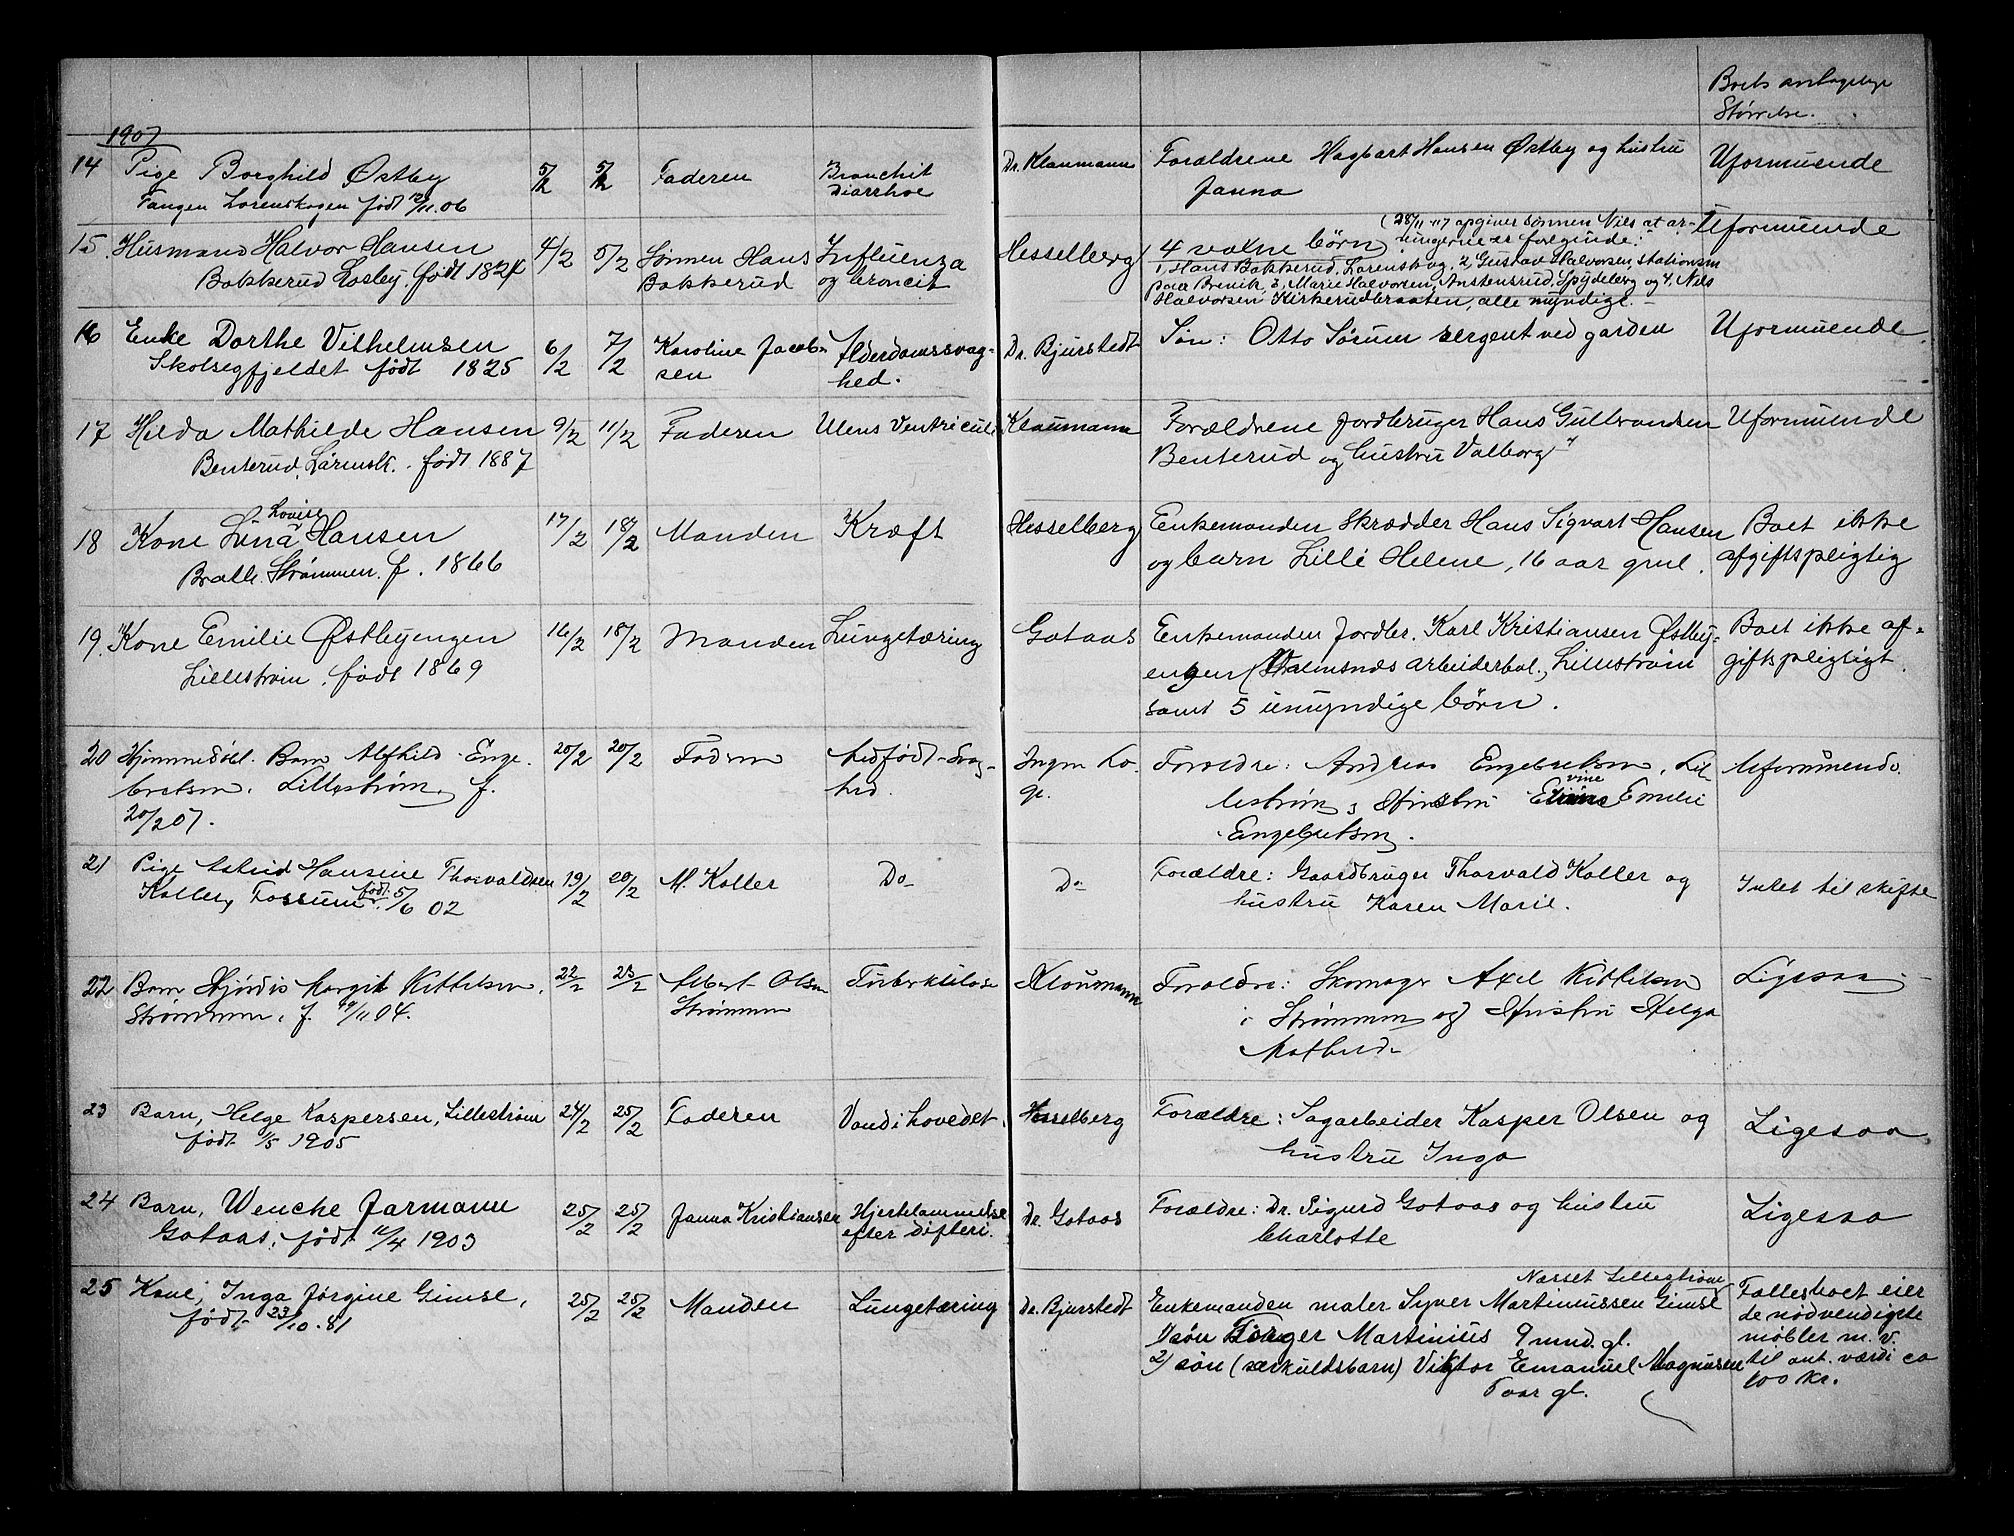 Boets antagelige
Størrelse.
1907
14 Pige Borghild Østby 5/2 5/2 Faderen Bronchit Dr. Klaumann Forældrene Hagbart Hansen Østby og hustru Uformuende
Fangen Lorenskogen født 12/11.06 Diarrhoe Janna
15. Husmand Halvor Hansen 4/2 5/2 Sønnen Hans Influenza Hesselberg 4 voxne børn (28/11-17 opgiver sønnen Nils at ar- Uformuende
Bakkerud Losby. født 1824 Bakkerud og broncit vingerne er følgende:
1, Hans Bakkerud, Lorenskog, 2, Gustav Halvorsen, stationsm
paa Brevik 3, Marie Halvorsen, Anstensrud, Spydeberg og 4, Nils
Halvorsen Kirkerudbraaten, alle myndige. -
16 Enke Dorthe Vilhelmsen 6/2 7/2 Karoline Jacob- Alderdomssvag- Dr. Bjurstedt Søn: Otto Sørum sergent ved garden Uformuende.
Skolsegfjeldet født 1825 sen hed.
17 Hilda Mathilde Hansen 9/2 11/2 Faderen Ulcus Ventriculi Klaumann Forældrene Jordbruger Hans Gulbrandsen Uformuende
Benterud, Lørensk. født 1887 Benterud og hustru Valborg
18 Kone Lina Lovise Hansen 17/2 18/2 Manden Kræft Hesselberg Enkemanden Skrædder Hans Sigvart Hansen Boet ikke
Bråtl. Strømmen. f. 1866 og barn Lilli Helene, 16 aar gml. afgiftspligtig
19. Kone Emilie Østbyengen 16/2 18/2 Manden Lungetæring Gotaas Enkemanden Jordbr. Karl Kristiansen Østby- Boet ikke af-
Lillestrøm. født 1869 engen (Holmsnæs arbeiderbol., Lillestrøm giftspligtigt.
samt 5 umyndige børn.
20 Hjemmedøbt. Barn Alfhild Enge- 20/2 20/2 Faderen Medfødt Svag- Ingen Læ- Foreldre: Andreas Engebretsen, Lil- Uformuende.
bretsen, Lillestrøm, f. hed. ge. lestrøm og Hustru Elvine Emilie
20/2 07. Engebretsen.
21 Pige Astrid Hansine Thorvaldsen 19/2 20/2 M. Koller Do Do Forældre: Gaardbruger Thorvald Koller og Intet til skifte
Koller, Fossum født 5/6 02 hustru Karen Marie.
22 Barn Hjørdis Margit Kittilsen, 22/2 23/2 Albert Olsen Tuberkulose Kloumann Foreldre: Skomager Axel Kittilsen Ligesaa
Strømmen, f. 19/11 04. Strømmen i Strømmen og Hustru Helga
Mathilde
23 Barn, Helge Kaspersen, Lillestrøm 24/2 25/2 Faderen Vand i hovedet. Hesselberg Forældre: Sagarbeider Kasper Olsen og Ligesaa.
født 1/5 1905 hustru Inga
24 Barn, Wenche Jarmann 25/2 25/2 Janna Kristiansen Hjertelammelse Dr. Gotaas Forældre: Dr. Sigurd Gotaas og hustru Ligesaa
Gotaas, født 11/4 1903 efter difteri. Charlotte
25 Kone, Inga Jørgine Gimse, 25/2 25/2 Manden Lungetæring Dr. Bjurstedt Enkemanden maler Syver Martinussen Gimse Næsset Lillestrøm Fallesboet eier
født 23/10.81 1) søn Birger Martinius 9 mnd. gl. de nødvendigste
møbler m.v.
2) søn (særkuldsbarn) Viktor Emanuel Magnusen til ant. værdi ca
7 aar gl. 100 kr.